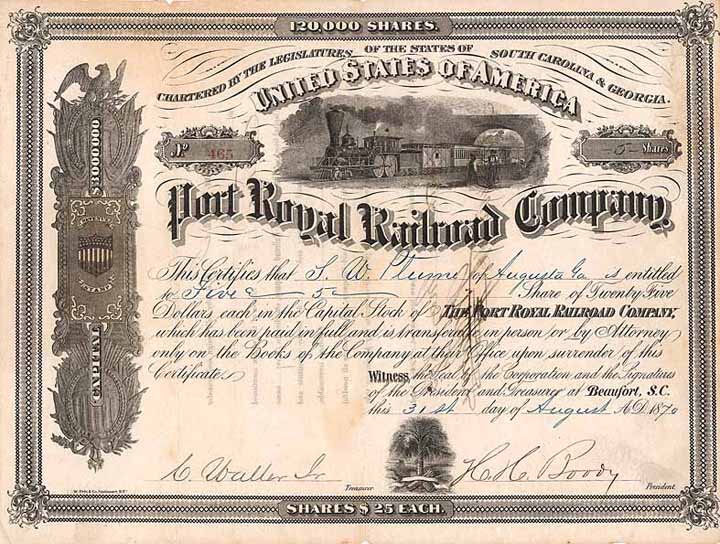 120,000 SHARES.
CHARTERED BY THE LEGISLATURES OF THE STATES OF SOUTH CAROLINA & GEORGIA.
UNITED STATES OF AMERICA
No 465
5 Shares
$3000000
CAPITAL
Port Royal Railroad Company,
This Certifies that S. W. Plume of Augusta Ga is entitled
to Five 5 Share of Twenty Five
Dollars each in the Capital Stock of THE PORT ROYAL RAILROAD COMPANY,
which has been paid in full and is transferable in person or by Attorney
only on the Books of the Company at their Office upon surrender of this
Certificate.
Witness, the Seal of the Corporation and the Signatures
of the President and Treasurer at Beaufort, S.C.
this 31st day of August A.D. 1870
C. Waller Jr. Treasurer
H. H. Boody President
SHARES $25 EACH.